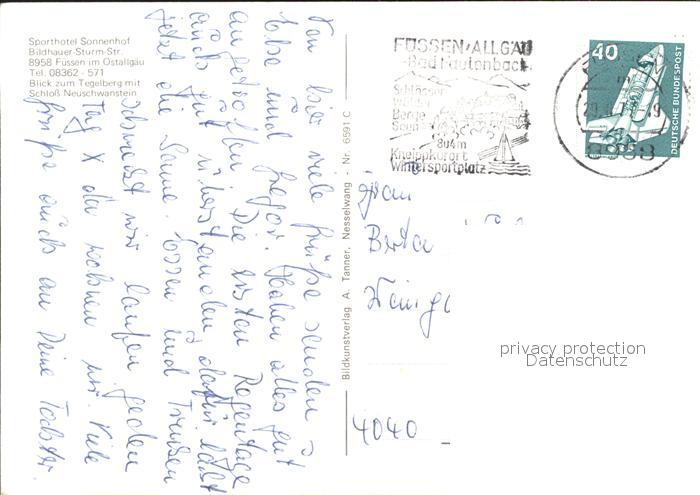 Sporthotel Sonnenhof
Bildhauer-Sturm-Str.
8958 Füssen im Ostallgäu
Tel. 08362 - 571
Blick zum Tegelberg mit
Schloß Neuschwanstein
Von hier viele Grüße senden
Ebba und Gregor. Haben alles gut
angetroffen. Die ersten Regentage
auch gut überstanden, dafür lacht
jetzt die Sonne. Essen und Trinken
schmeckt wir laufen jeden
Tag x da kochen wir. Viele
Grüße auch an Deine Tochter.
Bildkunstverlag A. Tanner, Nesselwang - Nr. 6591 C
FÜSSEN/ALLGÄU
Bad Faulenbach
Schlösser
Wälder
Berge
Seen
804m
Kneippkurort
Wintersportplatz
40
DEUTSCHE BUNDESPOST
Frau
Berta
4040
privacy protection
Datenschutz